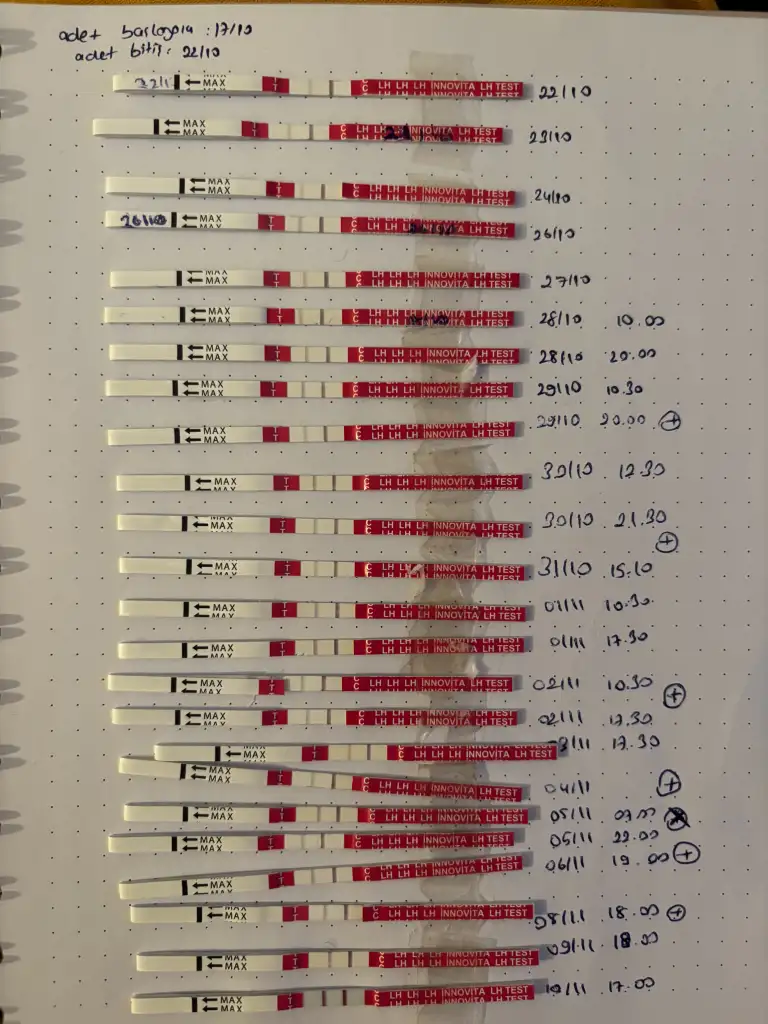 adet başlangıcı : 17/10
adet bitiş : 22/10
MAX MAX T T C C LH LH LH INNOVITA LH TEST 22/10
MAX MAX T T C C LH LH LH INNOVITA LH TEST 23/10
MAX MAX T T C C LH LH LH INNOVITA LH TEST 24/10
26/10 MAX MAX T T C C LH LH LH INNOVITA LH TEST 26/10
MAX MAX T T C C LH LH LH INNOVITA LH TEST 27/10
MAX MAX T T C C LH LH LH INNOVITA LH TEST 28/10 10.00
MAX MAX T T C C LH LH LH INNOVITA LH TEST 28/10 20.00
MAX MAX T T C C LH LH LH INNOVITA LH TEST 29/10 10.30
MAX MAX T T C C LH LH LH INNOVITA LH TEST 29/10 20.00 +
MAX MAX T T C C LH LH LH INNOVITA LH TEST 30/10 12.30
MAX MAX T T C C LH LH LH INNOVITA LH TEST 30/10 21.30 +
MAX MAX T T C C LH LH LH INNOVITA LH TEST 31/10 15.10
MAX MAX T T C C LH LH LH INNOVITA LH TEST 01/11 10.30
MAX MAX T T C C LH LH LH INNOVITA LH TEST 01/11 17.30
MAX MAX T T C C LH LH LH INNOVITA LH TEST 02/11 10.30 +
MAX MAX T T C C LH LH LH INNOVITA LH TEST 02/11 17.30
MAX MAX T T C C LH LH LH INNOVITA LH TEST 3/11 17.30
MAX MAX T T C C LH LH LH INNOVITA LH TEST 04/11 +
MAX MAX T T C C LH LH LH INNOVITA LH TEST 05/11
MAX MAX T T C C LH LH LH INNOVITA LH TEST 05/11 22.00
MAX MAX T T C C LH LH LH INNOVITA LH TEST 06/11 19.00 +
MAX MAX T T C C LH LH LH INNOVITA LH TEST 08/11 18.00 +
MAX MAX T T C C LH LH LH INNOVITA LH TEST 09/11 18.00
MAX MAX T T C C LH LH LH INNOVITA LH TEST 10/11 17.00